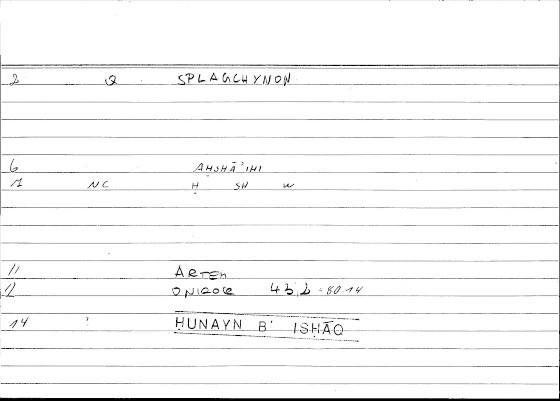 2 Q SPLAGCHYNON
6 AḤSHĀʾIHI
7 NC Ḥ SH W
11 ARTEM
12 ONIROCR 43,2 = 80.14
14 ḤUNAYN B' ISḤĀQ